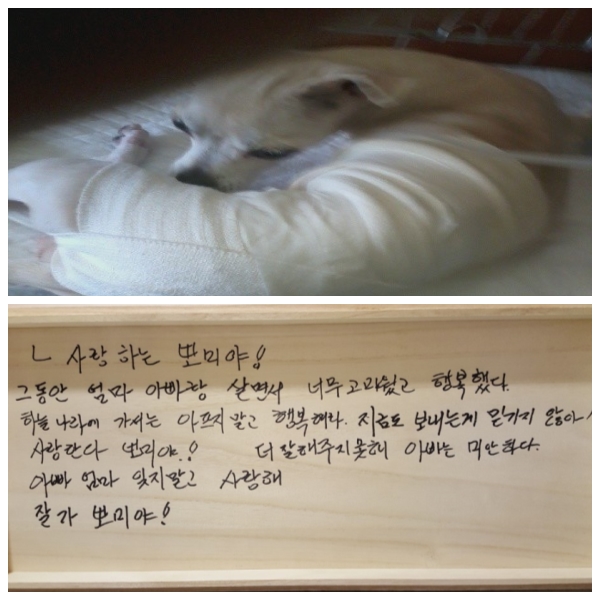 사랑하는 뽀미야!
그동안 엄마 아빠랑 살면서 너무 고마웠고 행복했다.
하늘나라에 가서는 아프지말고 행복해라. 지금도 보내는게 믿기지 않아
사랑한다 뽀미야.! 더 잘해주지못해 아빠는 미안하다.
아빠 엄마 잊지말고 사랑해
잘가 뽀미야!